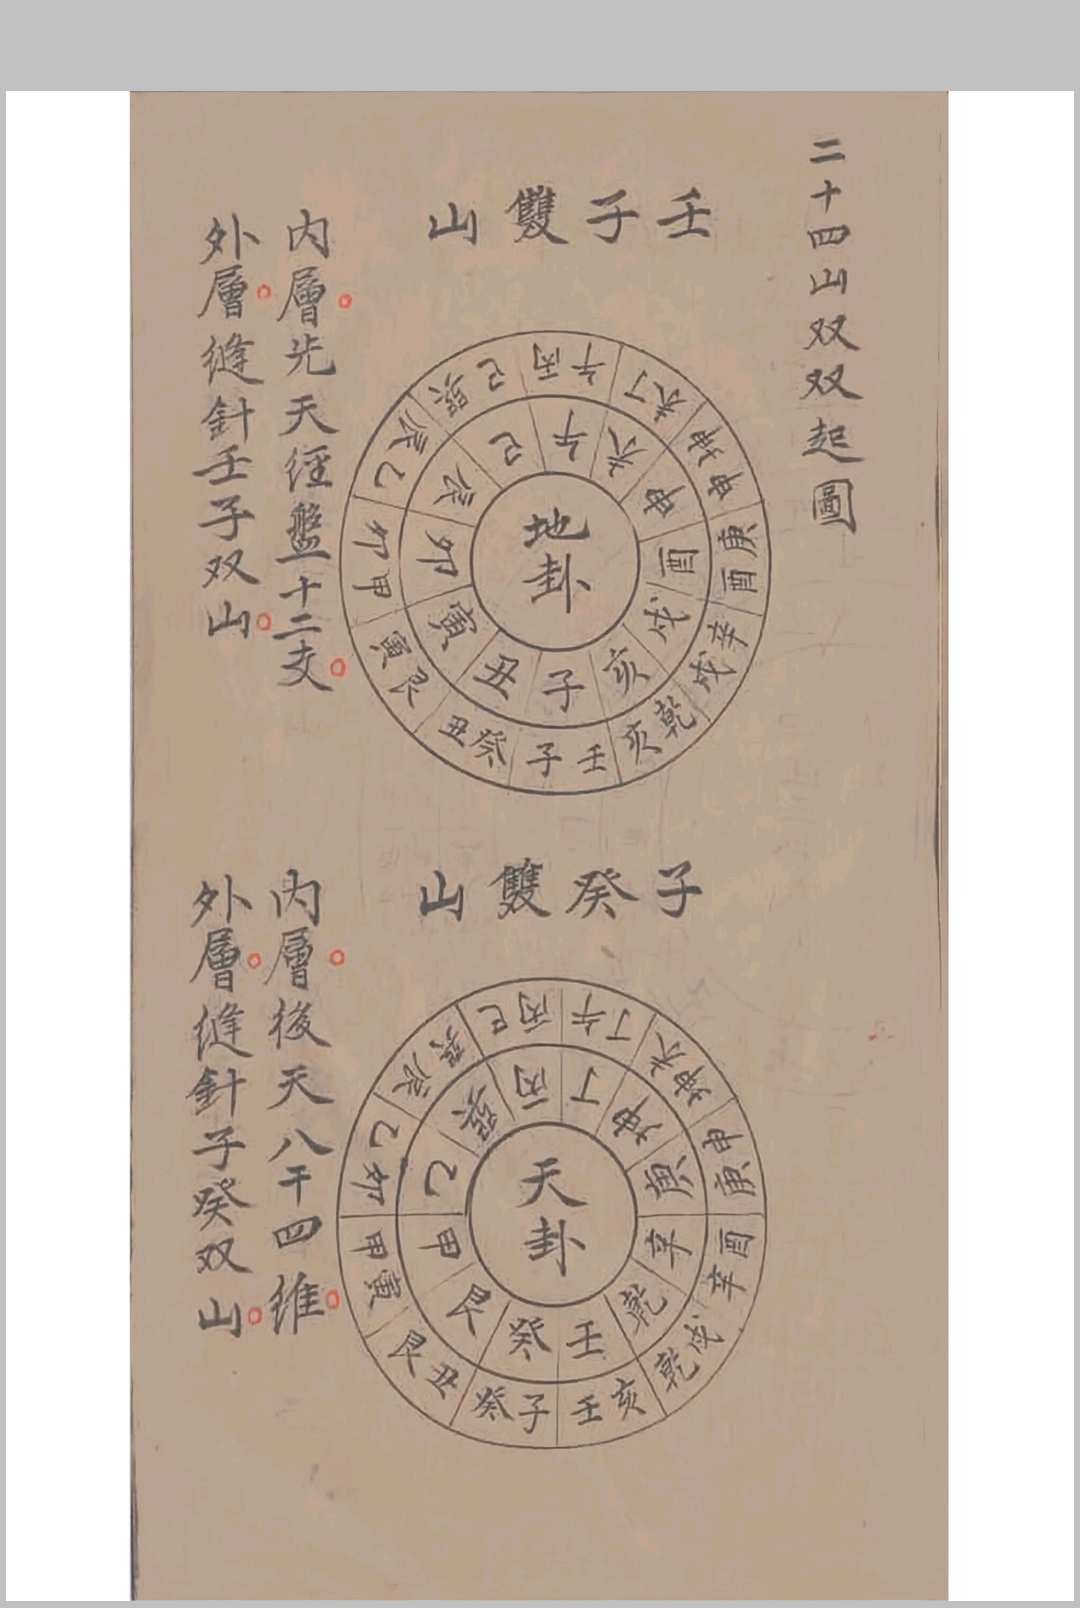 二十四山双双起圖
壬子雙山
地卦
子丑寅卯辰巳午未申酉戌亥
壬子癸丑艮寅甲卯乙辰巽巳丙午丁未坤申庚酉辛戌乾亥
內層先天經盤十二支
外層縫針壬子双山
子癸雙山
天卦
壬癸艮甲乙巽丙丁坤庚辛乾
子癸丑艮寅甲卯乙辰巽巳丙午丁未坤申庚酉辛戌乾亥壬
內層後天八干四維
外層縫針子癸双山